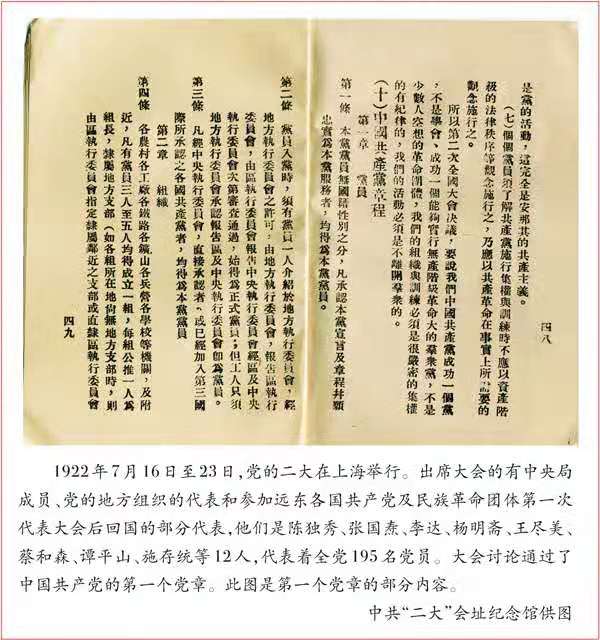 四八
是黨的活動，這完全是安那其的共產主義。
（七）個個黨員須了解共產黨施行集權與訓練時不應以資產階
級的法律秩序等觀念施行之，乃應以共產革命在事實上所需要的
觀念施行之。
所以第二次全國大會決議，要說我們中國共產黨成功一個黨
，不是學會，成功一個能夠實行無產階級革命大的羣衆黨，不是
少數人空想的革命團體，我們的組織與訓練必須是很嚴密的集權
的有紀律的，我們的活動必須是不離開羣衆的。
（十）中國共產黨章程
第一章　黨員
第一條　本黨黨員無國籍性別之分，凡承認本黨宣言及章程幷願
忠實爲本黨服務者，均得爲本黨黨員。
第二條　黨員入黨時，須有黨員一人介紹於地方執行委員會，經
地方執行委員會之許可，由地方執行委員會，報告區執行
委員會，由區執行委員會報告中央執行委員會經區及中央
執行委員會次第審查通過，始得爲正式黨員；但工人只須
地方執行委員會承認報告區及中央執行委員會卽爲黨員。
第三條　凡經中央執行委員會，直接承認者，或已經加入第三國
際所承認之各國共產黨者，均得爲本黨黨員
第二章　組織
第四條　各農村各工廠各鐵路各鑛山各兵營各學校等機關，及附
近，凡有黨員三人至五人均得成立一組，每組公推一人爲
組長，隸屬地方支部（如各組所在地尙無地方支部時，則
由區執行委員會指定隸屬鄰近之支部或直隸區執行委員會
四九
1922年7月16日至23日，党的二大在上海举行。出席大会的有中央局
成员、党的地方组织的代表和参加远东各国共产党及民族革命团体第一次
代表大会后回国的部分代表，他们是陈独秀、张国焘、李达、杨明斋、王尽美、
蔡和森、谭平山、施存统等12人，代表着全党195名党员。大会讨论通过了
中国共产党的第一个党章。此图是第一个党章的部分内容。
中共“二大”会址纪念馆供图